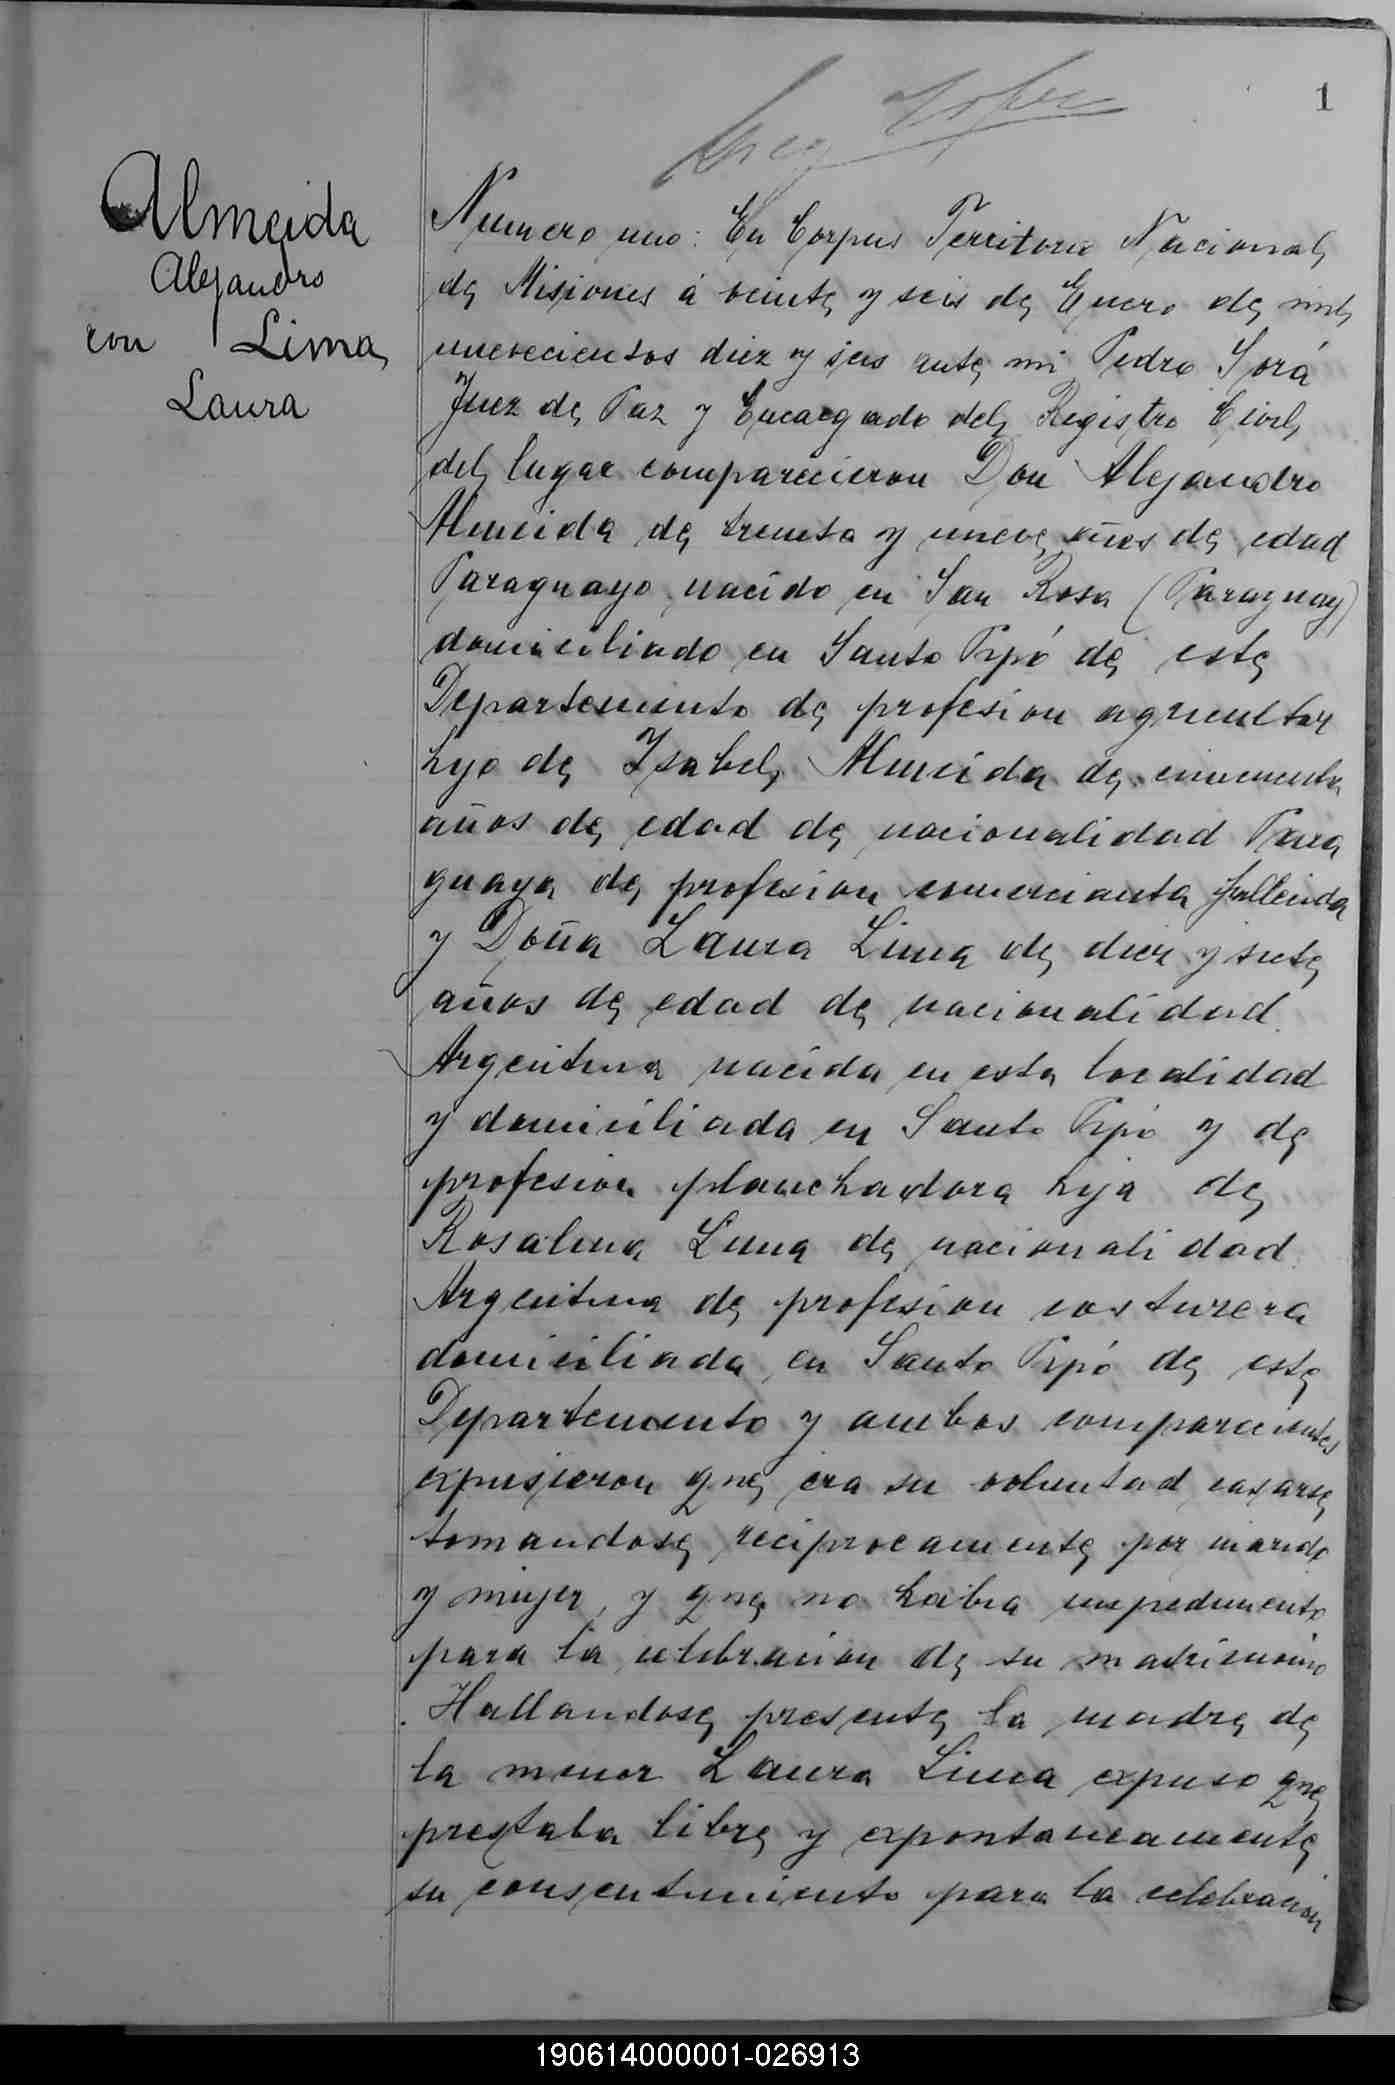 1
Almeida
Alejandro
con Lima,
Laura
Numero uno: En Corpus Territorio Nacional
de Misiones á veinte y seis de Enero de mil
novecientos diez y seis ante mi Pedro Sorá
Juez de Paz y Encargado del Registro Civil
del lugar comparecieron Don Alejandro
Almeida de treinta y nueve años de edad
Paraguayo, nacido en San Rosa (Paraguay)
domiciliado en Santo Pipó de este
Departamento de profesion agricultor
hijo de Isabel Almeida de cincuenta
años de edad de nacionalidad Para
guaya de profesion comercianta fallecida
y Doña Laura Lima de diez y siete
años de edad de nacionalidad
Argentina nacida en esta localidad
y domiciliada en Santo Pipó y de
profesion planchadora hija de
Rosalina Lima de nacionalidad
Argentina de profesion costurera
domiciliada en Santo Pipó de este
Departamento y ambos comparecientes
expusieron que era su voluntad casarse
tomandose reciprocamente por marido
y mujer, y que no habia impedimento
para la celebracion de su matrimonio
. Hallandose presente la madre de
la menor Laura Lima expuso que
prestaba libre y expontaneamente
su consentimiento para la celebracion
190614000001-026913